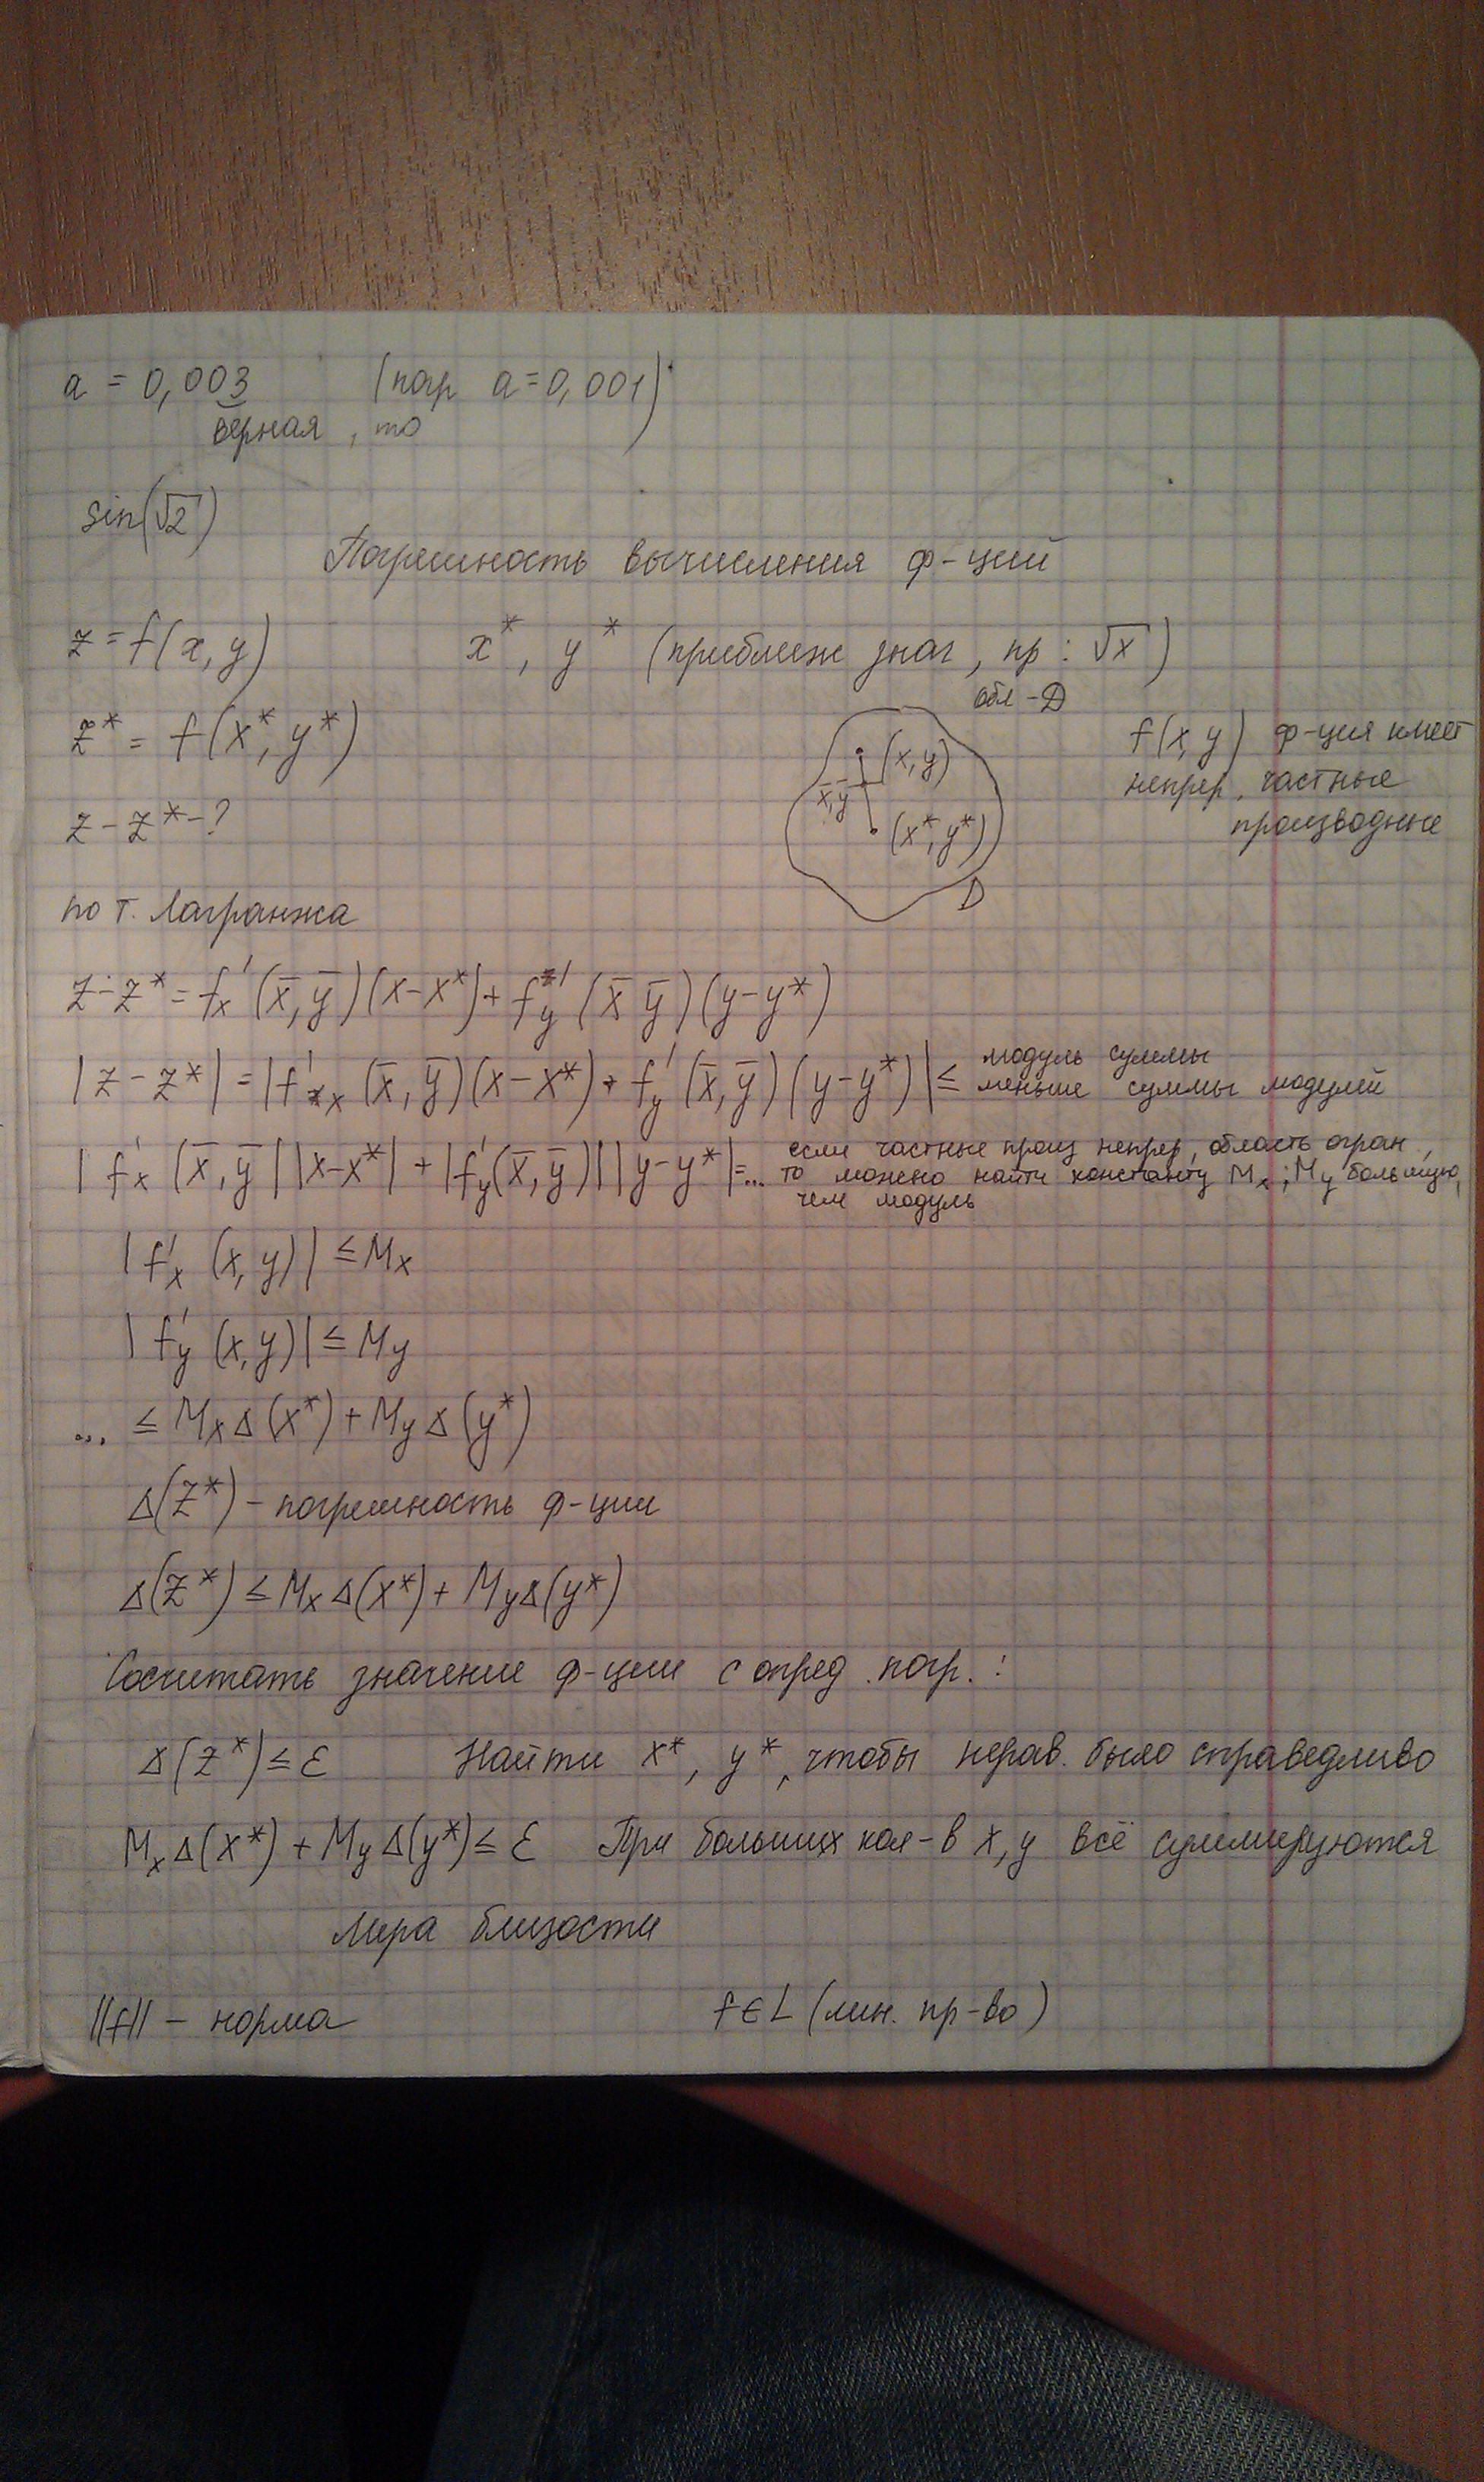 a = 0,003 (погр a=0,001)
верная, то
sin(√2)
Погрешность вычисления ф-ций
z = f(x, y) x*, y* (приближ знач, пр: √x)
обл - D
z* = f(x*, y*)
(x, y)
x̄, ȳ
(x*, y*)
D
f(x, y) ф-ция имеет
непрер. частные
производные
z - z* - ?
по т. Лагранжа
z - z* = f'x (x̄, ȳ)(x - x*) + f'y (x̄ ȳ)(y - y*)
|z - z*| = |f'x (x̄, ȳ)(x - x*) + f'y (x̄, ȳ)(y - y*)| ≤ модуль суммы
меньше суммы модулей
|f'x (x̄, ȳ||x - x*| + |f'y(x̄, ȳ)||y - y*| = ... если частные произ непрер, область огран.,
то можно найти константу Mx; My большую,
чем модуль
|f'x (x, y)| ≤ Mx
|f'y (x, y)| ≤ My
... ≤ Mx Δ(x*) + My Δ(y*)
Δ(z*) - погрешность ф-ции
Δ(z*) ≤ Mx Δ(x*) + My Δ(y*)
Сосчитать значение ф-ции с опред. погр.:
Δ(z*) ≤ ε Найти x*, y*, чтобы нерав. было справедливо
Mx Δ(x*) + My Δ(y*) ≤ ε При больших кол-в x, y всё суммируются
Мера близости
||f|| - норма f ∈ L (лин. пр-во)